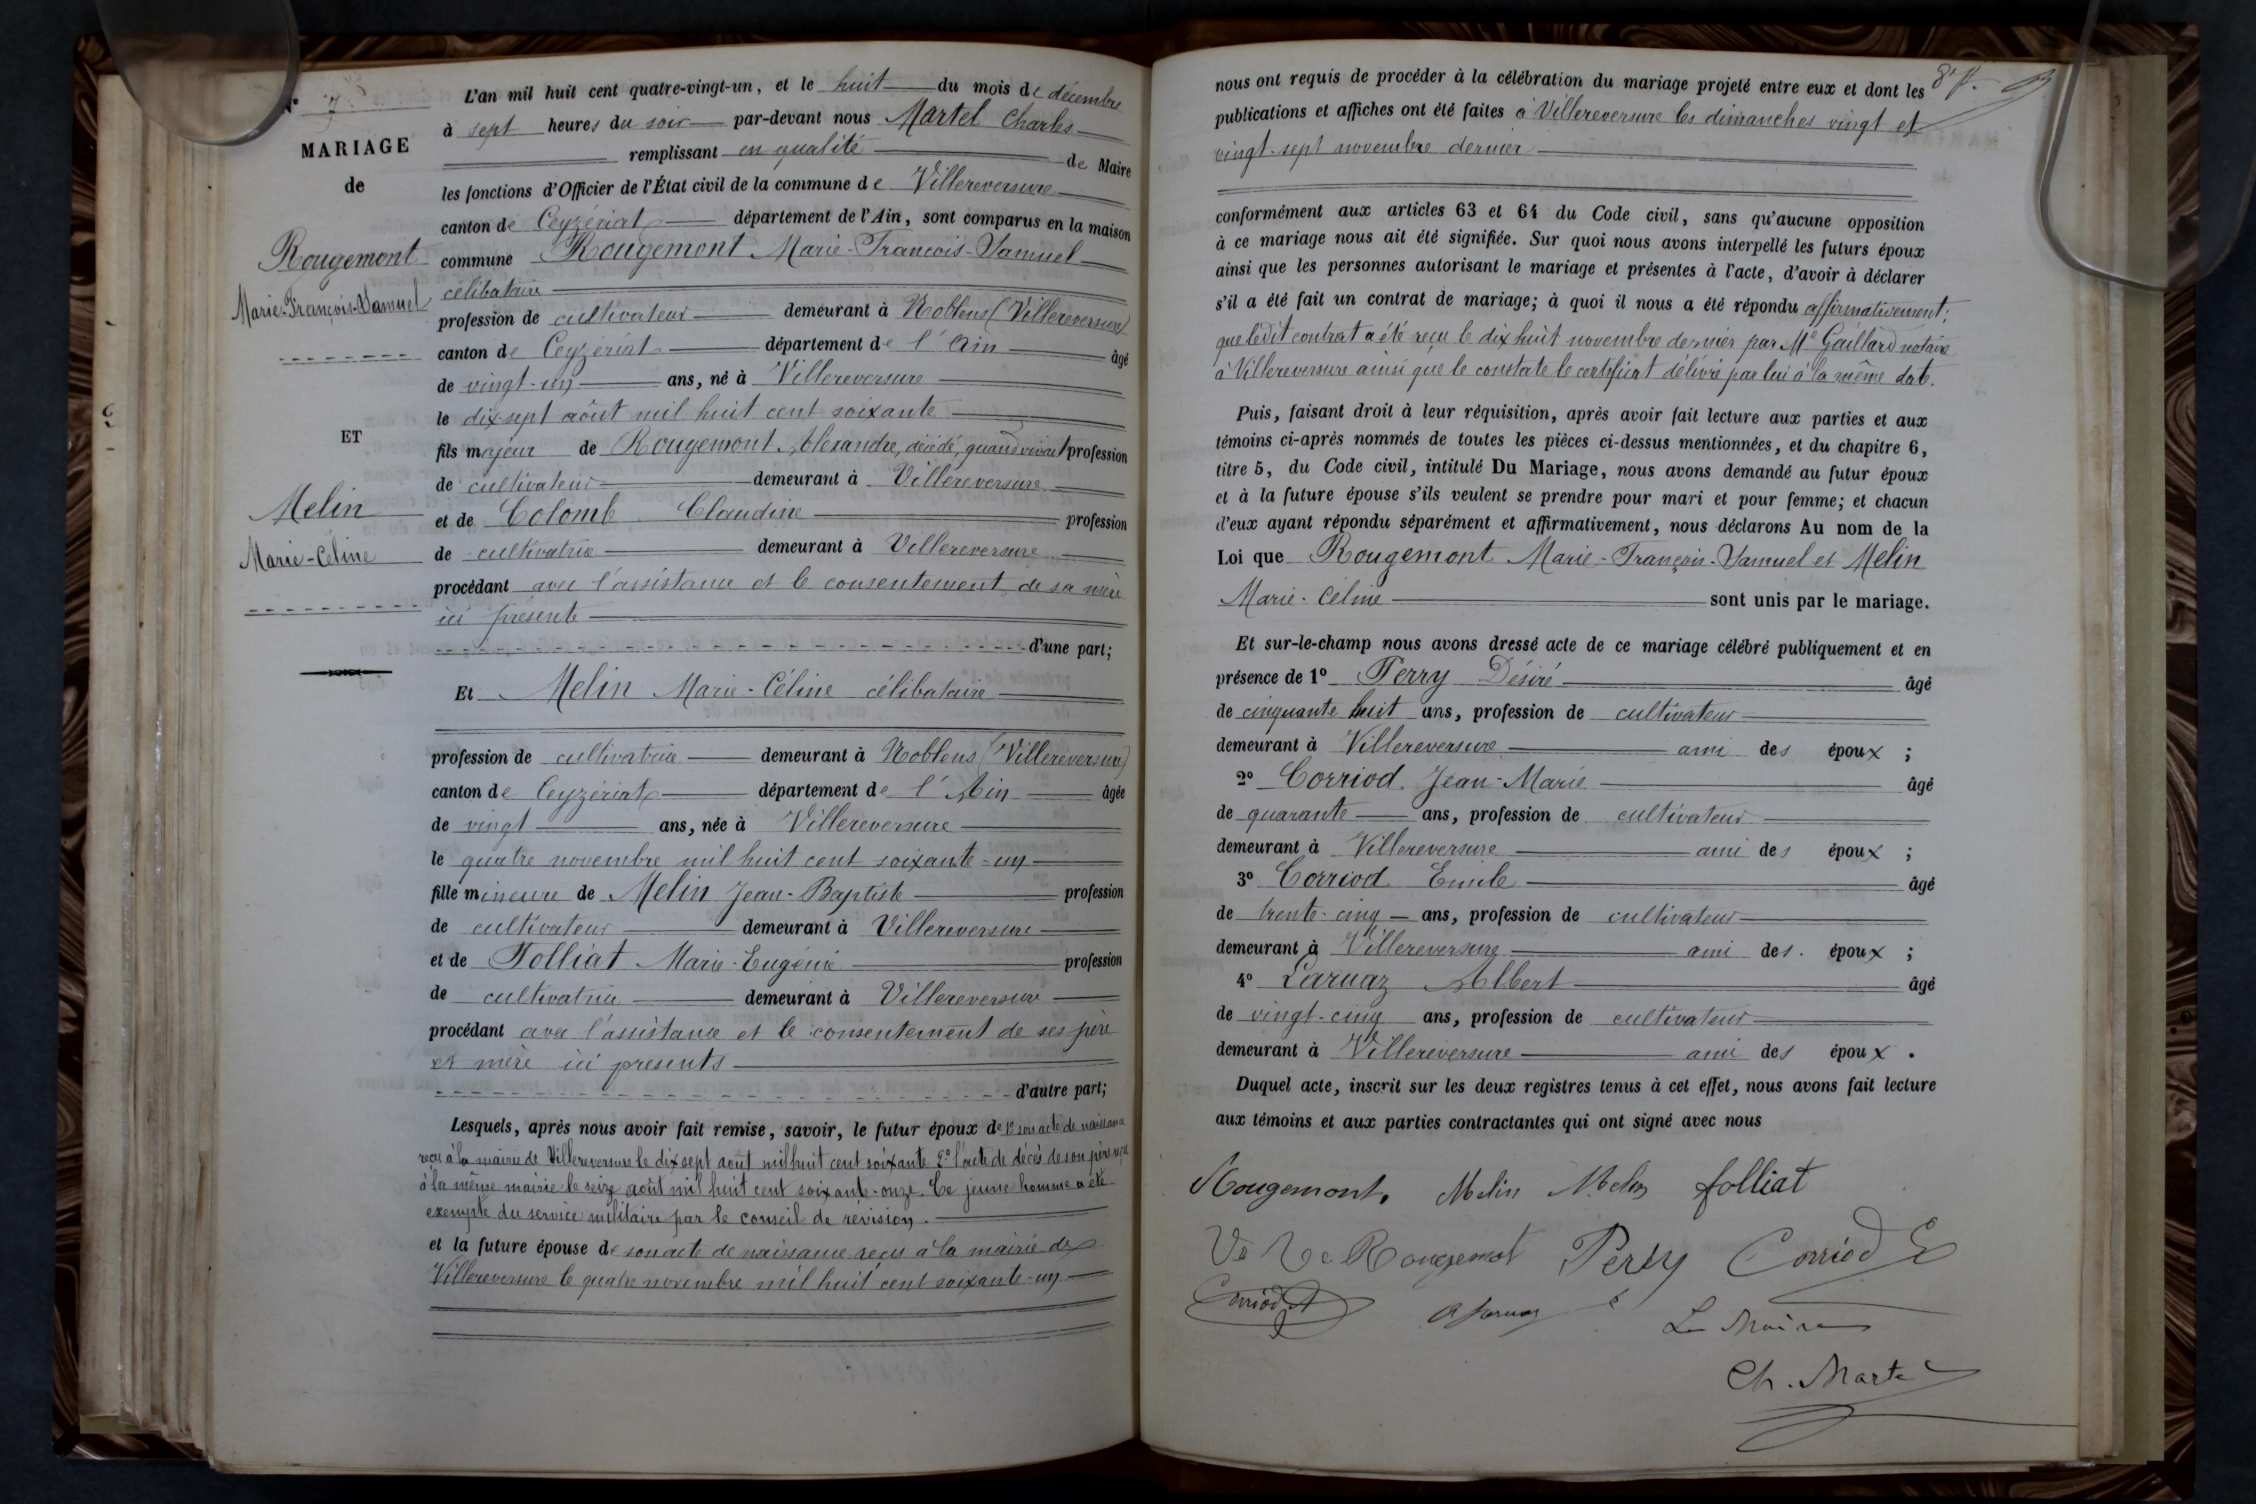 N° 7
MARIAGE
de
Rougemont
Marie-François-Samuel
ET
Melin
Marie-Céline
L'an mil huit cent quatre-vingt-un, et le huit du mois de décembre
à sept heures du soir par-devant nous Martel Charles
remplissant en qualité de Maire
les fonctions d'Officier de l'État civil de la commune de Villereversure
canton de Ceyzériat département de l'Ain, sont comparus en la maison
commune Rougemont Marie-François-Samuel
célibataire
profession de cultivateur demeurant à Noblens (Villereversure)
canton de Ceyzériat département de l'Ain âgé
de vingt-un ans, né à Villereversure
le dix-sept août mil huit cent soixante
fils majeur de Rougemont Alexandre, décédé, quand vivait profession
de cultivateur demeurant à Villereversure
et de Colomb Claudine profession
de cultivatrice demeurant à Villereversure
procédant avec l'assistance et le consentement de sa mère
ici présente
d'une part;
Et Melin Marie-Céline célibataire
profession de cultivatrice demeurant à Noblens (Villereversure)
canton de Ceyzériat département de l'Ain âgée
de vingt ans, née à Villereversure
le quatre novembre mil huit cent soixante-un
fille mineure de Melin Jean-Baptiste profession
de cultivateur demeurant à Villereversure
et de Folliat Marie-Eugénie profession
de cultivatrice demeurant à Villereversure
procédant avec l'assistance et le consentement de ses père
et mère ici présents
d'autre part;
Lesquels, après nous avoir fait remise, savoir, le futur époux de 1° son acte de naissance
reçu à la mairie de Villereversure le dix sept août mil huit cent soixante 2° l'acte de décès de son père reçu
à la même mairie le seize août mil huit cent soixante-onze. Ce jeune homme a été
exempté du service militaire par le conseil de révision.
et la future épouse de son acte de naissance reçu à la mairie de
Villereversure le quatre novembre mil huit cent soixante-un
nous ont requis de procéder à la célébration du mariage projeté entre eux et dont les
publications et affiches ont été faites à Villereversure les dimanches vingt et
vingt-sept novembre dernier
conformément aux articles 63 et 64 du Code civil, sans qu'aucune opposition
à ce mariage nous ait été signifiée. Sur quoi nous avons interpellé les futurs époux
ainsi que les personnes autorisant le mariage et présentes à l'acte, d'avoir à déclarer
s'il a été fait un contrat de mariage; à quoi il nous a été répondu affirmativement;
que ledit contrat a été reçu le dix huit novembre dernier par Me Gaillard notaire
à Villereversure ainsi que le constate le certificat délivré par lui à la même date.
Puis, faisant droit à leur réquisition, après avoir fait lecture aux parties et aux
témoins ci-après nommés de toutes les pièces ci-dessus mentionnées, et du chapitre 6,
titre 5, du Code civil, intitulé Du Mariage, nous avons demandé au futur époux
et à la future épouse s'ils veulent se prendre pour mari et pour femme; et chacun
d'eux ayant répondu séparément et affirmativement, nous déclarons Au nom de la
Loi que Rougemont Marie-François-Samuel et Melin
Marie-Céline sont unis par le mariage.
Et sur-le-champ nous avons dressé acte de ce mariage célébré publiquement et en
présence de 1° Perry Désiré âgé
de cinquante huit ans, profession de cultivateur
demeurant à Villereversure ami des époux ;
2° Corriod Jean-Marie âgé
de quarante ans, profession de cultivateur
demeurant à Villereversure ami des époux ;
3° Corriod Emile âgé
de trente-cinq ans, profession de cultivateur
demeurant à Villereversure ami des époux ;
4° Laruaz Albert âgé
de vingt-cinq ans, profession de cultivateur
demeurant à Villereversure ami des époux.
Duquel acte, inscrit sur les deux registres tenus à cet effet, nous avons fait lecture
aux témoins et aux parties contractantes qui ont signé avec nous
Rougemont, Melin Melin folliat
Ve Rougemot Perry Corriod E
Corriod
Le Maire
Ch. Martel